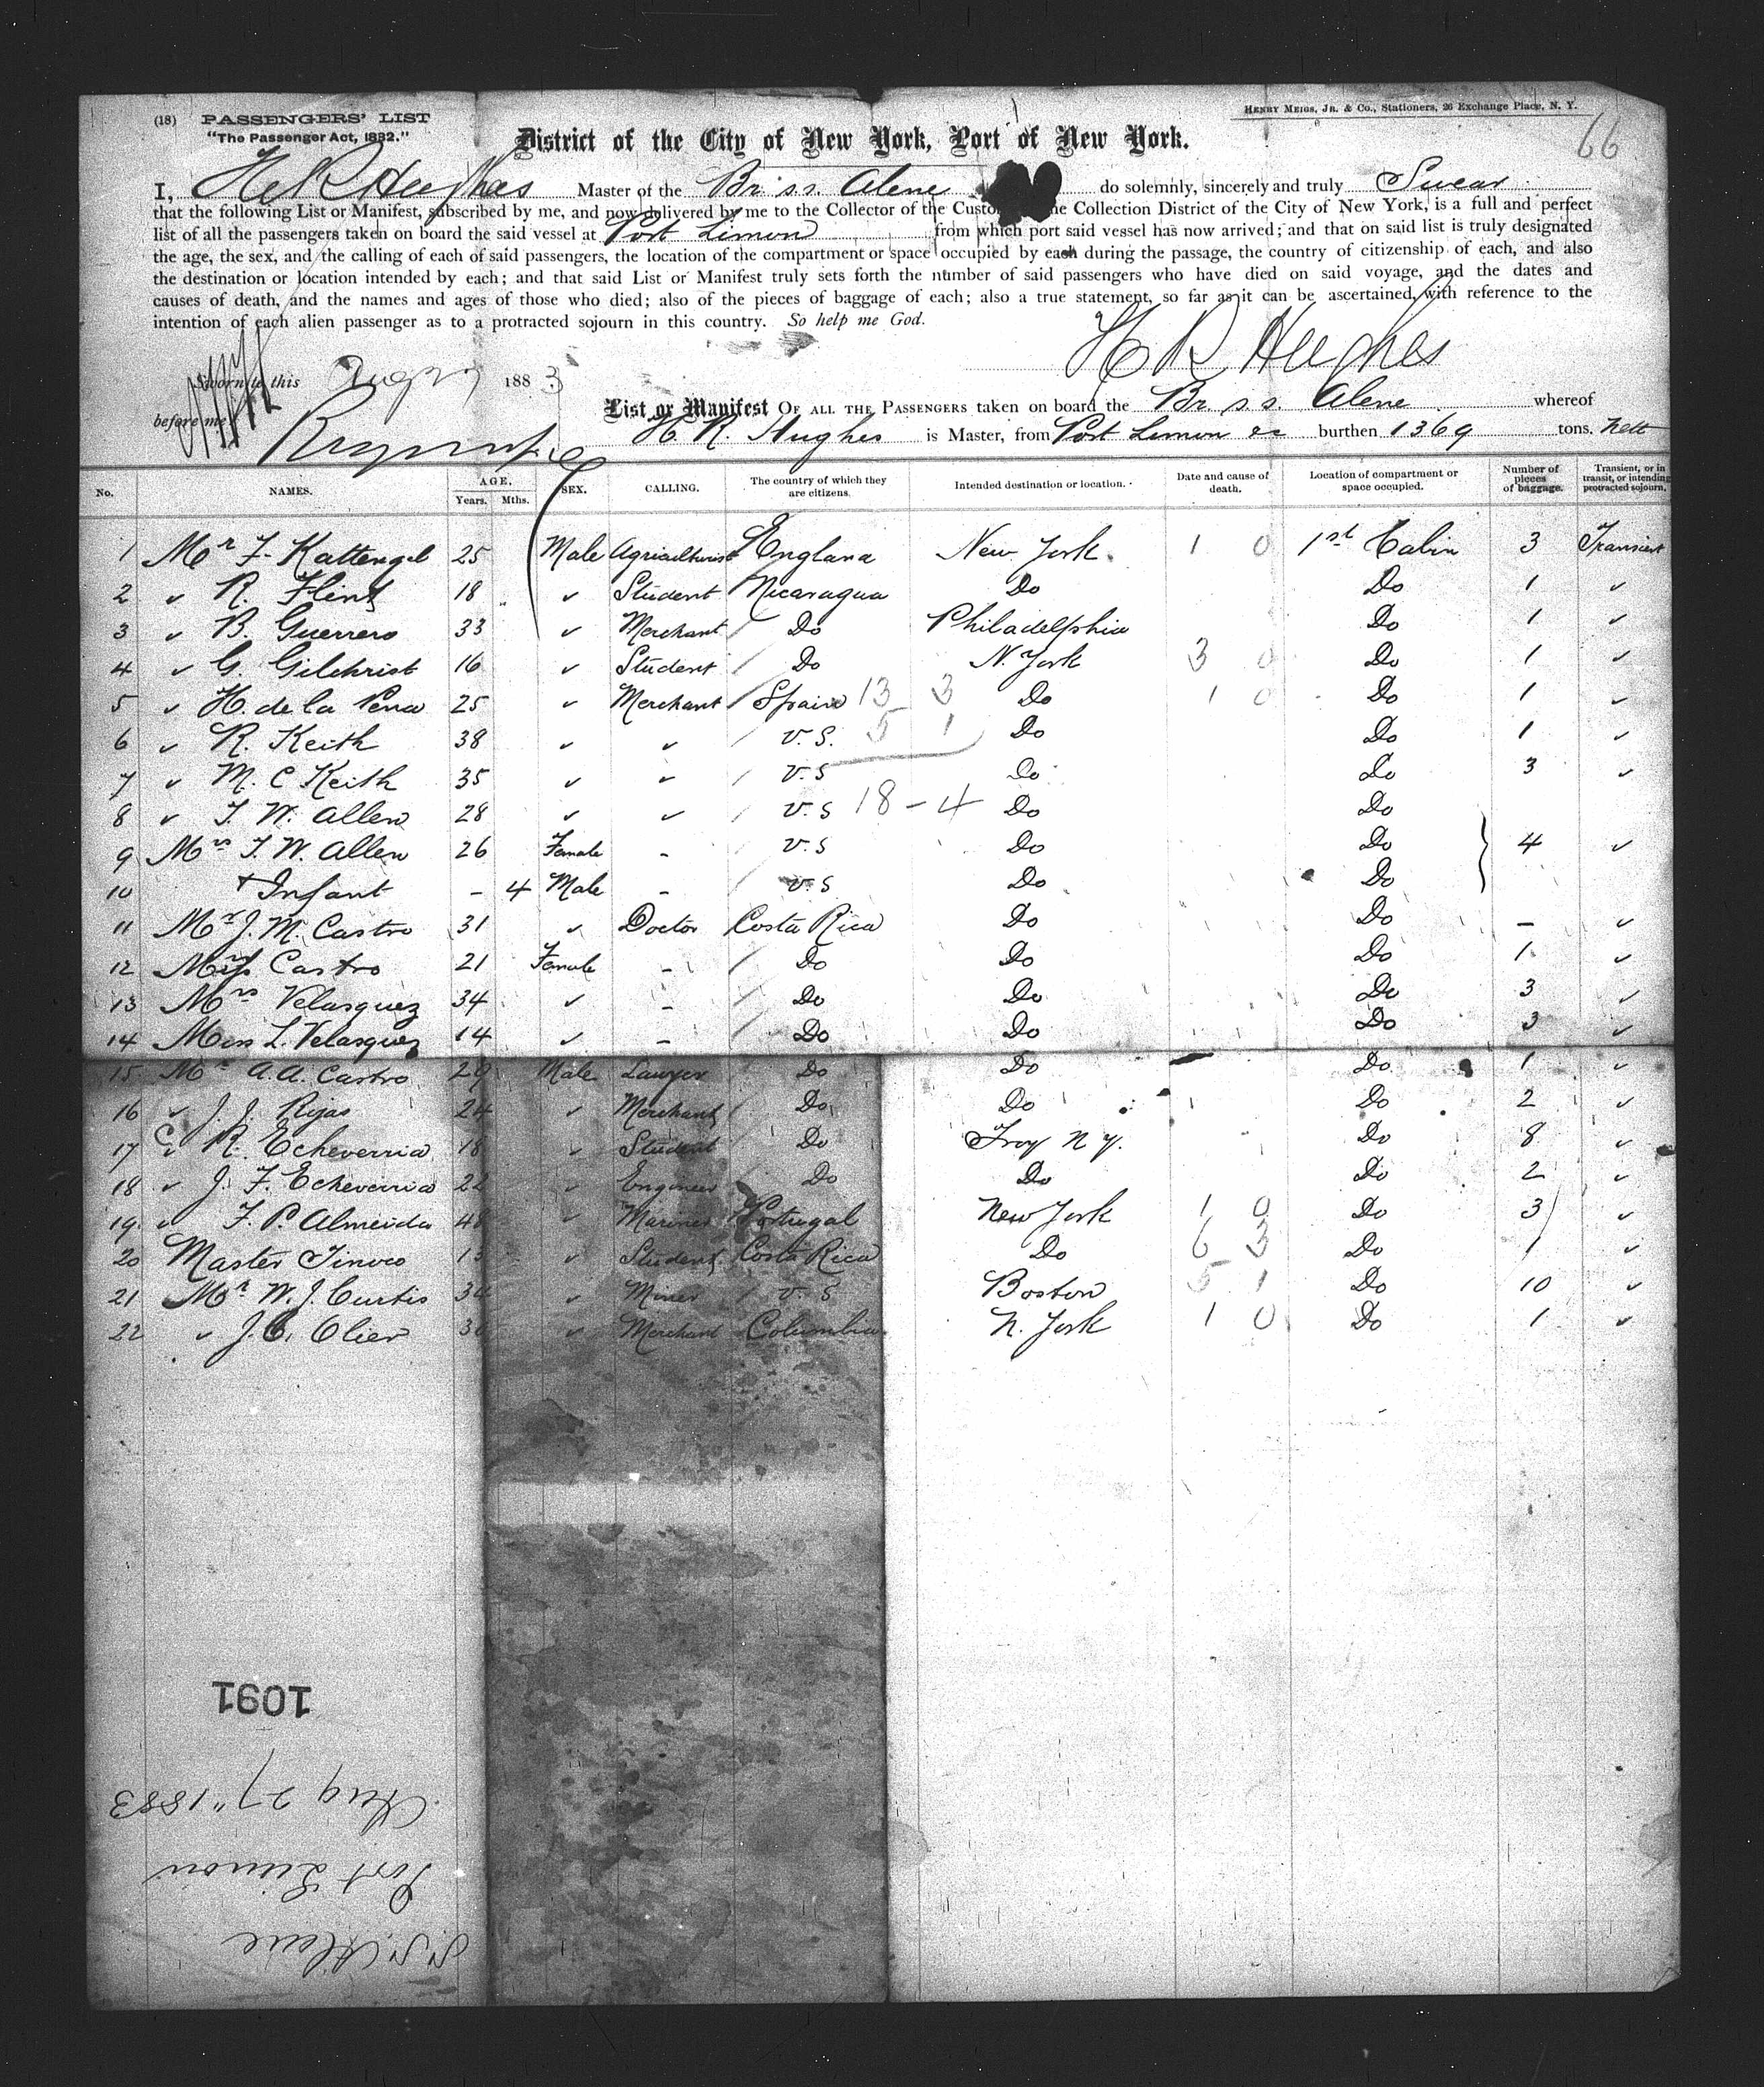 (18) PASSENGERS' LIST
"The Passenger Act, 1882."
HENRY MEIGS, JR. & CO., Stationers, 26 Exchange Place, N. Y.
66
District of the City of New York, Port of New York.
I, H R Hughes Master of the Br. s.s. Alene do solemnly, sincerely and truly Swear
that the following List or Manifest, subscribed by me, and now delivered by me to the Collector of the Custo he Collection District of the City of New York, is a full and perfect
list of all the passengers taken on board the said vessel at Port Limon from which port said vessel has now arrived; and that on said list is truly designated
the age, the sex, and the calling of each of said passengers, the location of the compartment or space occupied by each during the passage, the country of citizenship of each, and also
the destination or location intended by each; and that said List or Manifest truly sets forth the number of said passengers who have died on said voyage, and the dates and
causes of death, and the names and ages of those who died; also of the pieces of baggage of each; also a true statement, so far as it can be ascertained, with reference to the
intention of each alien passenger as to a protracted sojourn in this country. So help me God.
H R Hughes
Sworn to this Aug 27 1883
before me
List or Manifest OF ALL THE PASSENGERS taken on board the Br. s.s. Alene whereof
H. R. Hughes is Master, from Port Limon burthen 1369 tons. Nett
No. NAMES. AGE. Years. Mths. SEX. CALLING. The country of which they are citizens. Intended destination or location. Date and cause of death. Location of compartment or space occupied. Number of pieces of baggage. Transient, or in transit, or intending protracted sojourn.
1 Mr F. Kattengel 25 Male Agriculturist England New York. 1 0 1st Cabin 3 Transient
2 " R. Flint 18 " Student Nicaragua Do Do 1 "
3 " B. Guerrero 33 " Merchant Do Philadelphia Do 1 "
4 " G. Gilchrist 16 " Student Do N. York 3 0 Do 1 "
5 " H. de la Pena 25 " Merchant Spain 13 3 Do 1 0 Do 1 "
6 " R. Keith 38 " " U.S. 5 1 Do Do 1 "
7 " M. C Keith 35 " " U.S Do Do 3 "
8 " J. W. Allen 28 " " U.S 18 - 4 Do Do
9 Mrs J. W. Allen 26 Female - U.S Do Do 4 "
10 + Infant - 4 Male - U.S Do Do
11 Mr J. M. Castro 31 " Doctor Costa Rica Do Do - "
12 Castro 21 Female - Do Do Do 1 "
13 Mrs Velasquez 34 " - Do Do Do 3 "
14 Miss L. Velasquez 14 " - Do Do Do 3 "
15 Mr A. A. Castro 29 Male Lawyer Do Do Do 1 "
16 " J. J. Rijas 24 " Merchant Do Do Do 2 "
17 " R. Echeverria 18 " Student Do Troy N Y. Do 8 "
18 " J. F. Echeverria 22 " Engineer Do Do Do 2 "
19 " F. P. Almeida 48 " Mariner Portugal New York 1 0 Do 3 "
20 Master Tinoco 13 " Student Costa Rica Do 6 3 Do 1 "
21 Mr W. J. Curtis 34 " Miner U.S Boston 5 1 Do 10 "
22 " J. C. Olier " Merchant Columbia N. York 1 0 Do 1 "
1091
S.S. Alene
Port Limon
Aug 27" 1883